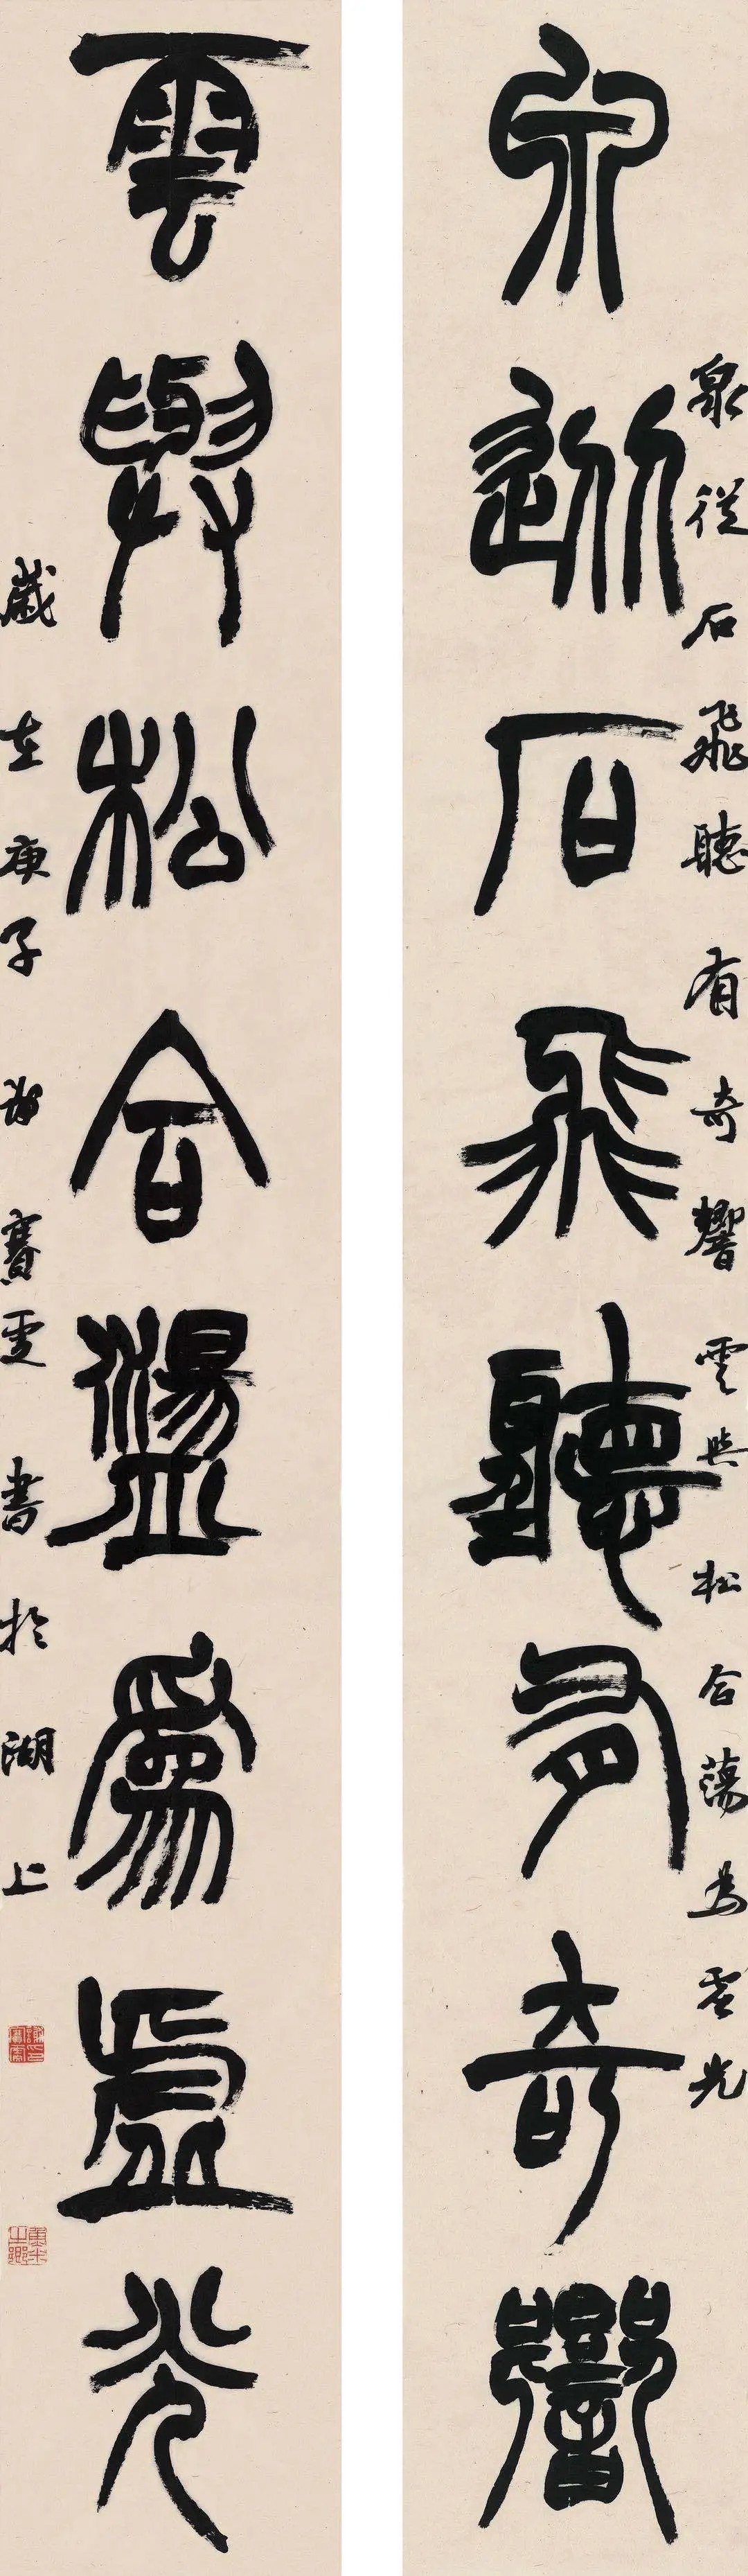 泉從石飛聽有奇響
泉從石飛聽有奇響雲與松合蕩為雲光
雲與松合盪為虛光
歲在庚子 賽雯書於湖上